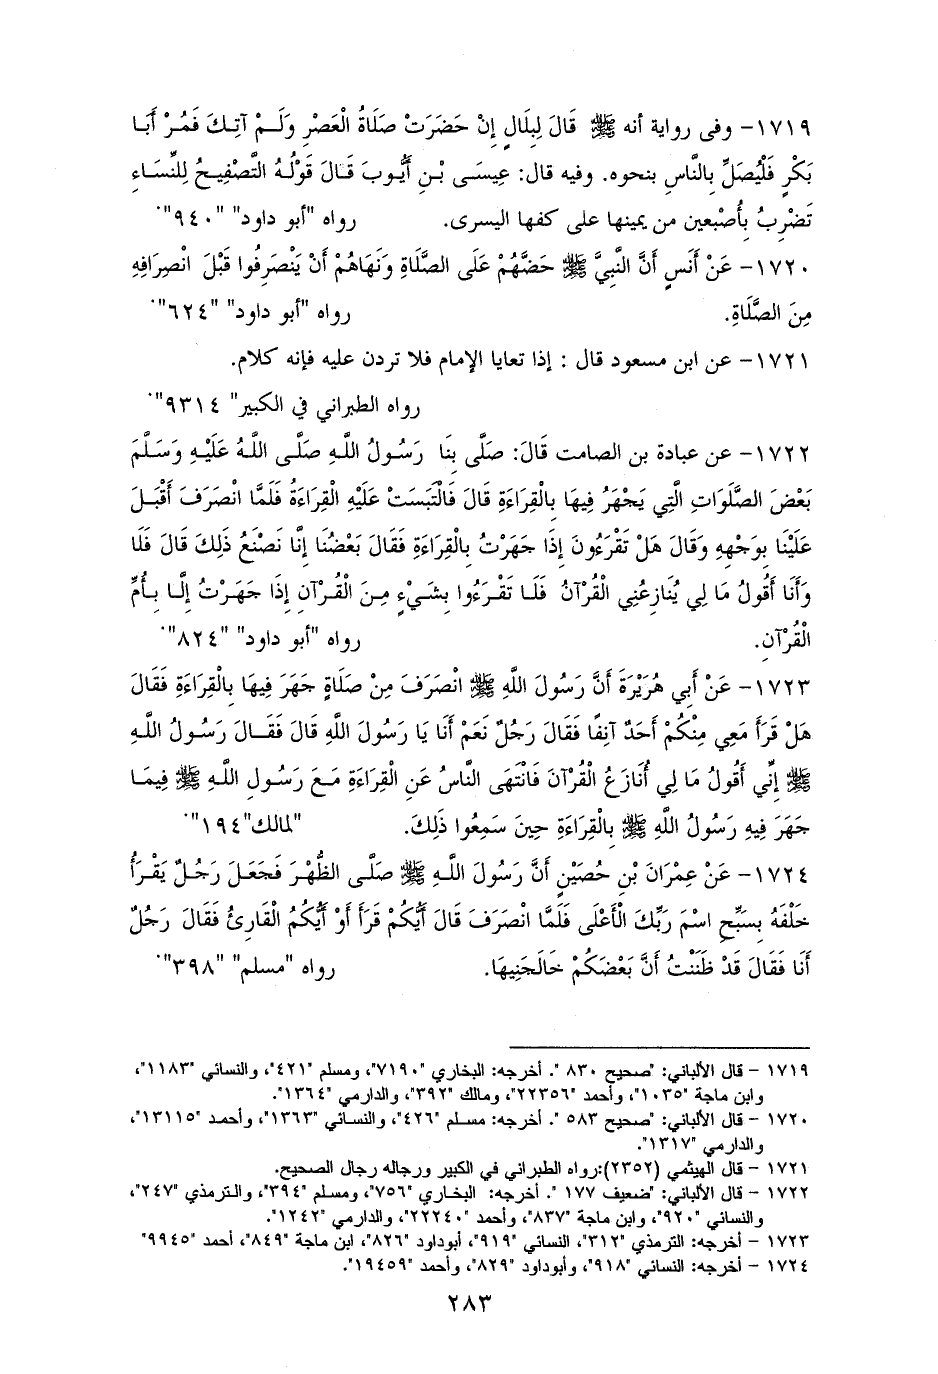 ١٧١٩- وفى رواية أنه ﷺ قَالَ لِبِلَالٍ إِنْ حَضَرَتْ صَلَاةُ الْعَصْرِ وَلَمْ آتِكَ فَمُرْ أَبَا
بَكْرٍ فَلْيُصَلِّ بِالنَّاسِ بنحوه. وفيه قال: عِيسَى بْنِ أَيُّوبَ قَالَ قَوْلُهُ التَّصْفِيحُ لِلنِّسَاءِ
تَضْرِبُ بِأُصْبعين من يمينها على كفها اليسرى. رواه "أبو داود" "٩٤٠".
١٧٢٠- عَنْ أَنَسٍ أَنَّ النَّبِيَّ ﷺ حَضَّهُمْ عَلَى الصَّلَاةِ وَنَهَاهُمْ أَنْ يَنْصَرِفُوا قَبْلَ انْصِرَافِهِ
مِنَ الصَّلَاةِ. رواه "أبو داود" "٦٢٤".
١٧٢١- عن ابن مسعود قال : إذا تعايا الإمام فلا تردن عليه فإنه كلام.
رواه الطبراني في الكبير" ٩٣١٤".
١٧٢٢- عن عبادة بن الصامت قَالَ: صَلَّى بِنَا رَسُولُ اللَّهِ صَلَّى اللَّهُ عَلَيْهِ وَسَلَّمَ
بَعْضَ الصَّلَوَاتِ الَّتِي يَجْهَرُ فِيهَا بِالْقِرَاءَةِ قَالَ فَالْتَبَسَتْ عَلَيْهِ الْقِرَاءَةُ فَلَمَّا انْصَرَفَ أَقْبَلَ
عَلَيْنَا بِوَجْهِهِ وَقَالَ هَلْ تَقْرَءُونَ إِذَا جَهَرْتُ بِالْقِرَاءَةِ فَقَالَ بَعْضُنَا إِنَّا نَصْنَعُ ذَلِكَ قَالَ فَلَا
وَأَنَا أَقُولُ مَا لِي يُنَازِعُنِي الْقُرْآنُ فَلَا تَقْرَءُوا بِشَيْءٍ مِنَ الْقُرْآنِ إِذَا جَهَرْتُ إِلَّا بِأُمِّ
الْقُرْآنِ. رواه "أبو داود" "٨٢٤".
١٧٢٣- عَنْ أَبِي هُرَيْرَةَ أَنَّ رَسُولَ اللَّهِ ﷺ انْصَرَفَ مِنْ صَلَاةٍ جَهَرَ فِيهَا بِالْقِرَاءَةِ فَقَالَ
هَلْ قَرَأَ مَعِي مِنْكُمْ أَحَدٌ آنِفًا فَقَالَ رَجُلٌ نَعَمْ أَنَا يَا رَسُولَ اللَّهِ قَالَ فَقَالَ رَسُولُ اللَّهِ
ﷺ إِنِّي أَقُولُ مَا لِي أُنَازَعُ الْقُرْآنَ فَانْتَهَى النَّاسُ عَنِ الْقِرَاءَةِ مَعَ رَسُولِ اللَّهِ ﷺ فِيمَا
جَهَرَ فِيهِ رَسُولُ اللَّهِ ﷺ بِالْقِرَاءَةِ حِينَ سَمِعُوا ذَلِكَ. "لمالك"١٩٤".
١٧٢٤- عَنْ عِمْرَانَ بْنِ حُصَيْنٍ أَنَّ رَسُولَ اللَّهِ ﷺ صَلَّى الظُّهْرَ فَجَعَلَ رَجُلٌ يَقْرَأُ
خَلْفَهُ بِسَبِّحِ اسْمَ رَبِّكَ الْأَعْلَى فَلَمَّا انْصَرَفَ قَالَ أَيُّكُمْ قَرَأَ أَوْ أَيُّكُمُ الْقَارِئُ فَقَالَ رَجُلٌ
أَنَا فَقَالَ قَدْ ظَنَنْتُ أَنَّ بَعْضَكُمْ خَالَجَنِيهَا. رواه "مسلم" "٣٩٨".
١٧١٩ - قال الألباني: "صحيح ٨٣٠ ". أخرجه: البخاري "٧١٩٠"، ومسلم "٤٢١"، والنسائي "١١٨٣"،
وابن ماجة "١٠٣٥"، وأحمد "٢٢٣٥٦"، ومالك "٣٩٢"، والدارمي "١٣٦٤".
١٧٢٠ - قال الألباني: "صحيح ٥٨٣ ". أخرجه: مسلم "٤٢٦"، والنسائي "١٣٦٣"، وأحمد "١٣١١٥"،
والدارمي "١٣١٧".
١٧٢١ - قال الهيثمي (٢٣٥٢):رواه الطبراني في الكبير ورجاله رجال الصحيح.
١٧٢٢ - قال الألباني: "ضعيف ١٧٧ ". أخرجه: البخاري "٧٥٦"، ومسلم "٣٩٤"، والترمذي "٢٤٧"،
والنسائي "٩٢٠"، وابن ماجة "٨٣٧"، وأحمد "٢٢٢٤٠"، والدارمي "١٢٤٢".
١٧٢٣ - أخرجه: الترمذي "٣١٢"، النسائي "٩١٩"، أبوداود "٨٢٦"، ابن ماجة "٨٤٩"، أحمد "٩٩٤٥"
١٧٢٤ - أخرجه: النسائي "٩١٨"، وأبوداود "٨٢٩"، وأحمد "١٩٤٥٩".
٢٨٣